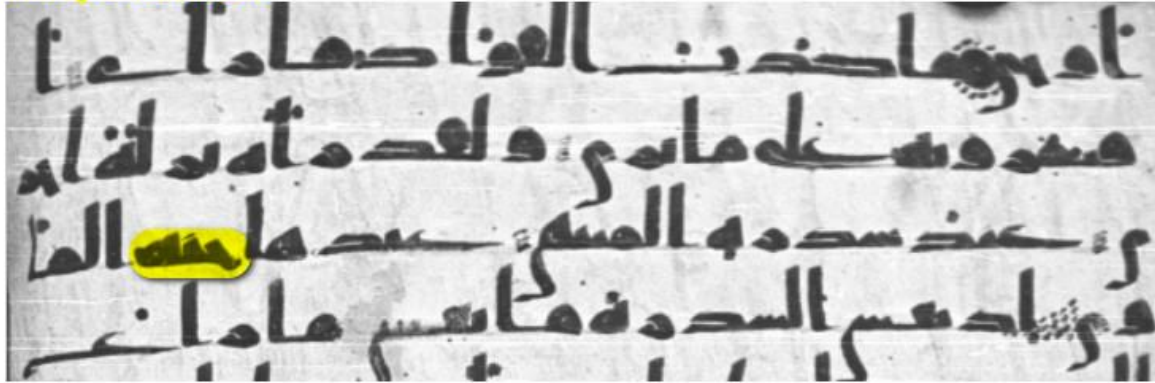 اوحى ما كذب الفواد ما راى ا
فتمرونه على ما يرى ولقد راه نزله اخر
ى عند سدره المنتهى عندها جنه الما
وى اذ يغشى السدره ما يغشى ما زاغ